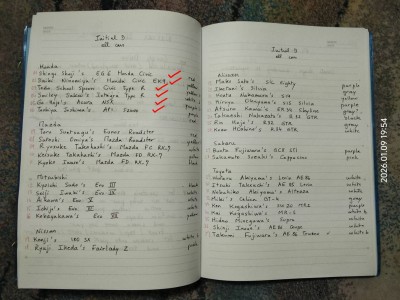 Initial D
all cars
Honda:
Shingo Shoji's EG6 Honda Civic
Daiki Ninomiya's Honda Civic EK9 red
Todo School Spoon Civic Type R yellow
Smiley Sakai's Integra Type R
Go Hojo's Acura NSX
Toshiya Joshima's AP1 S2000 purple
Mazda
Toru Suetsugu's Eunos Roadster
Satoshi Omiya's Mazda Roadster
Ryosuke Takahashi's Mazda FC RX-7 white
Keisuke Takahashi's Mazda FD RX-7 yellow
Kyoko Iwase's Mazda FD RX-7 black
Mitsubishi
Kyoichi Sudo's Evo III black
Seiji Iwaki's Evo IV white
Aikawa's Evo V
Ichijo's Evo VI white
Kobayakawa's Evo VII
Nissan
Kenji's 180 SX
Ryuji Ikeda's Fairlady Z
Initial D
all cars
Nissan
Mako Sato's Sil Eighty
Iketani's Silvia
Kouta Nakamura's S14
Hiroya Okuyama's S15 Silvia purple
Atsuro Kawai's ER34 Skyline gray
Takeshi Nakazato's R32 GTR black
Rin Hojo's R32 GTR
Kozo Hoshino's R34 GTR purple
Subaru
Bunta Fujiwara's GC8 STI purple
Sakamoto Suzuki's Cappuccino pink
Toyota
Wataru Akiyama's Levin AE86 white
Itsuki Takeuchi's AE85 Levin white
Nobuhiko Akiyama's Altezza white
Miki's Celica GT-4 gray
Ken Kogashiwa's SW20 MR2 purple
Kai Kogashiwa's MR-S white
Hideo Minagawa's Supra
Shinji Inui's AE86 Coupe white
Takumi Fujiwara's AE86 Trueno white b
2026.01.09 19:54